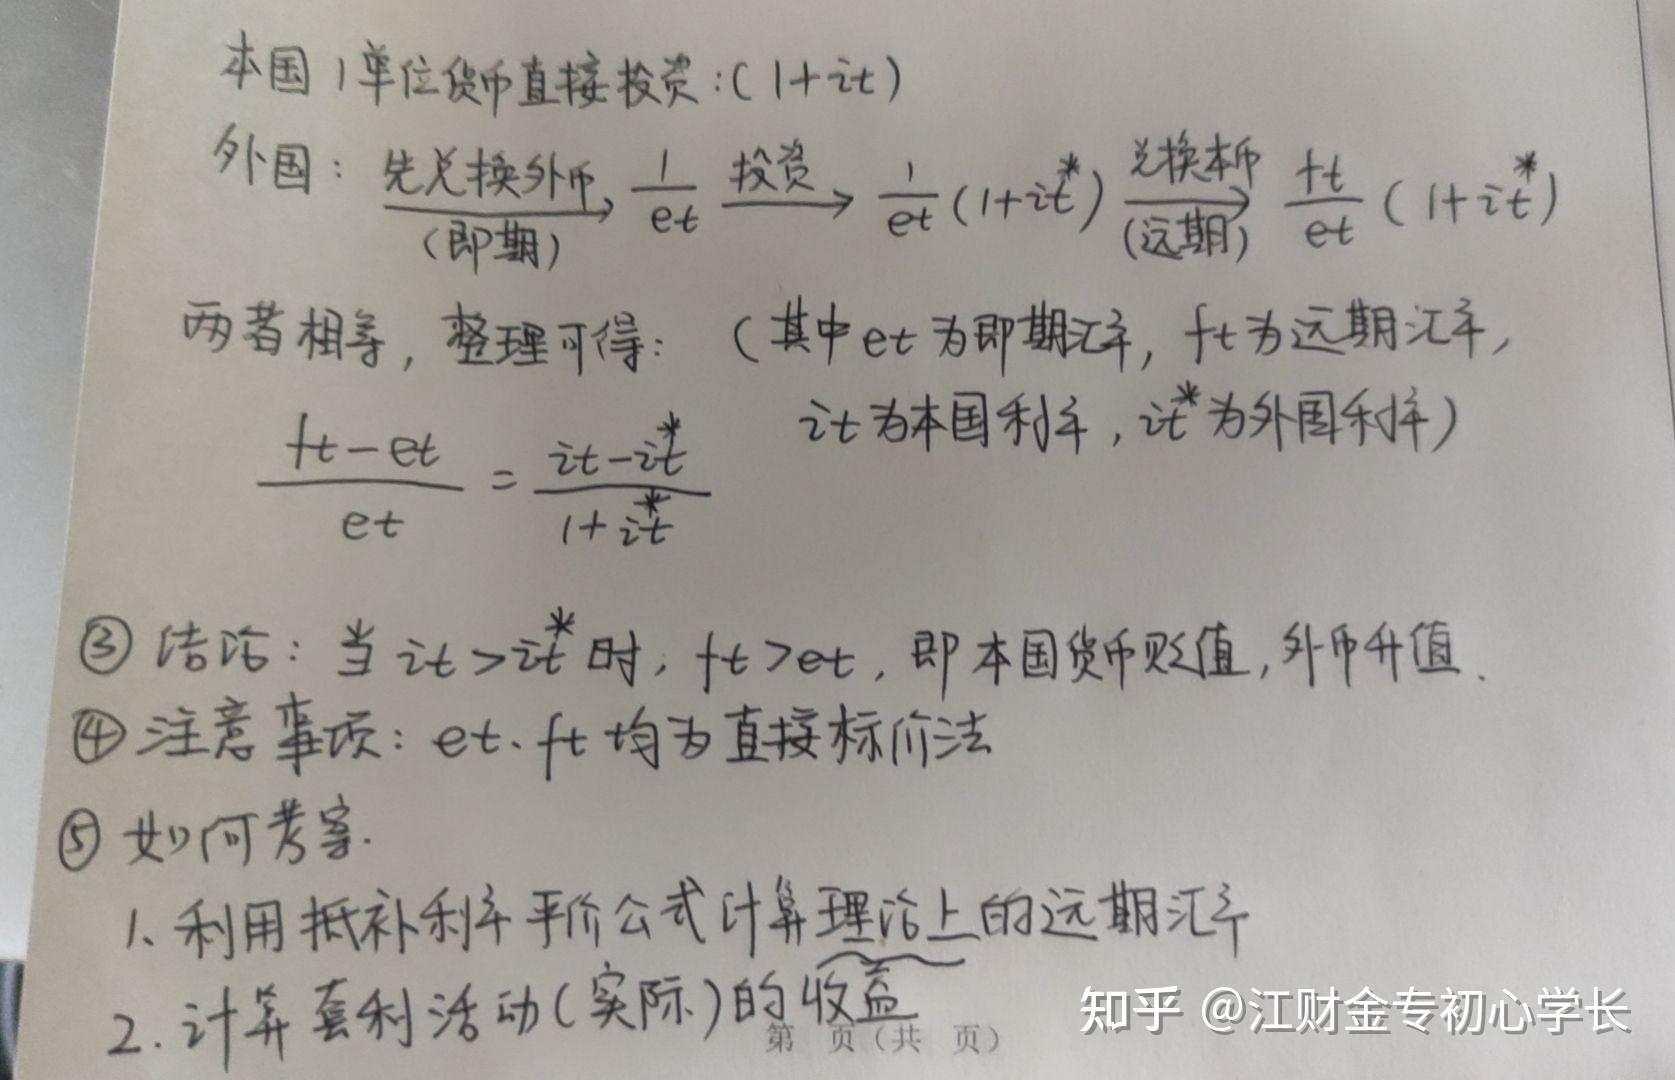 本国1单位货币直接投资:(1+it)
外国: 先兑换外币(即期)→ 1/et 投资→ 1/et(1+it*) 兑换本币(远期)→ ft/et(1+it*)
两者相等,整理可得: (其中et为即期汇率, ft为远期汇率,
it为本国利率, it*为外国利率)
(ft-et)/et = (it-it*)/(1+it*)
③ 结论: 当it>it*时, ft>et, 即本国货币贬值, 外币升值.
④ 注意事项: et、ft均为直接标价法
⑤ 如何考察.
1. 利用抵补利率平价公式计算理论上的远期汇率
2. 计算套利活动(实际)的收益
第 页(共 页)
知乎 @江财金专初心学长